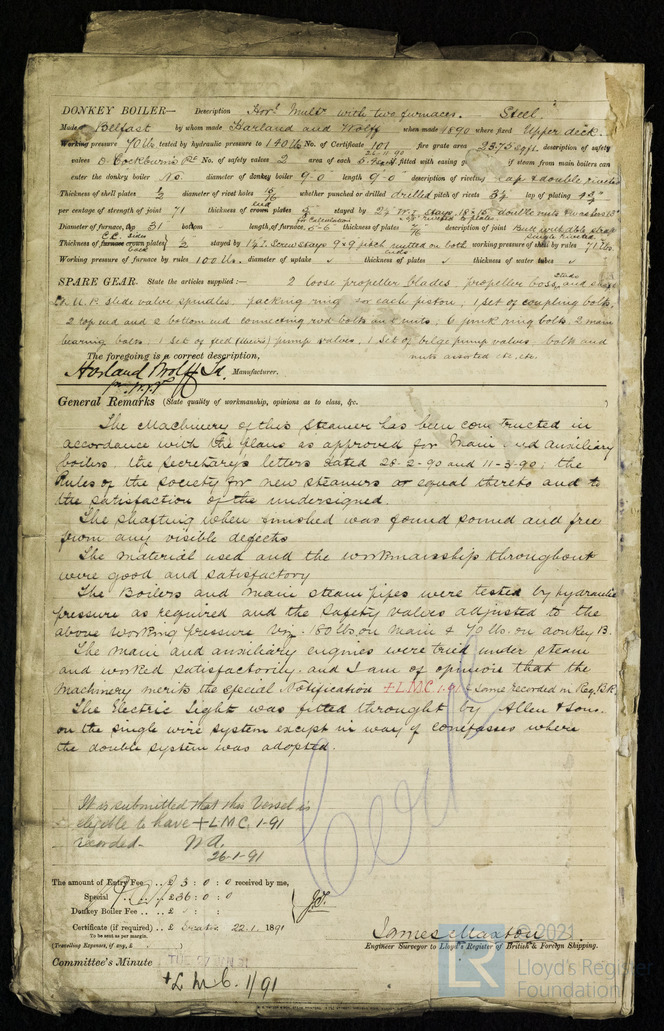 DONKEY BOILER— Description Horl Multr with two furnaces. Steel
Made at Belfast by whom made Harland and Wolff when made 1890 where fixed Upper deck.
Working pressure 70 lbs tested by hydraulic pressure to 140 lbs No. of Certificate 101 fire grate area 23.75 sq ft. description of safety
valves No. of safety valves 2 area of each fitted with easing g if steam from main boilers can
enter the donkey boiler No. diameter of donkey boiler 9-0 length 9-0 description of riveting lap & double riveted
Thickness of shell plates ½ diameter of rivet holes whether punched or drilled drilled pitch of rivets lap of plating
per centage of strength of joint 71 thickness of crown plates stayed by
Diameter of furnace, top 31 bottom length, of furnace, thickness of plates description of joint
Thickness of furnace crown plates ½ stayed by Screw stays 9 x 9 pitch nutted on both working pressure of shell by rules 71 lbs.
Working pressure of furnace by rules 100 lbs. diameter of uptake thickness of plates thickness of water tubes
SPARE GEAR. State the articles supplied:— 2 loose propeller blades, propeller boss, studs and
slide valve spindles, packing ring for each piston, 1 set of coupling bolts,
2 top end and 2 bottom end connecting rod bolts and nuts, 6 junk ring bolts, 2 main
bearing bolts. 1 Set of feed pump valves, 1 Set of bilge pump valves, bolts and
nuts assorted etc. etc.
The foregoing is a correct description,
Harland Wolff Ld. Manufacturer.
General Remarks (State quality of workmanship, opinions as to class, &c.
The Machinery of this Steamer has been constructed in
accordance with the plans as approved for Main and Auxiliary
boilers, the Secretary's letters dated 28-2-90 and 11-3-90; the
Rules of the Society for new steamers or equal thereto and to
the satisfaction of the undersigned.
The Shafting when finished was found sound and free
from any visible defects
The material used and the workmanship throughout
were good and satisfactory
The Boilers and Main steam pipes were tested by hydraulic
pressure as required and the Safety Valves adjusted to the
above working pressure Viz. 180 lbs on Main & 70 lbs. on donkey B.
The main and auxiliary engines were tried under steam
and worked satisfactorily and I am of opinion that the
Machinery merits the special Notification +LMC 1-91 & same recorded in Reg. Bk.
The Electric Light was fitted throught by Allen & Sons
on the single wire system except in way of compasses where
the double system was adopted.
It is submitted that this Vessel is
eligible to have +LMC 1-91
recorded.
26-1-91
The amount of Entry Fee .. £ 3 : 0 : 0 received by me,
Special £36 : 0 : 0
Donkey Boiler Fee .. .. £
Certificate (if required) .. £ 22.1.1891
To be sent as per margin.
(Travelling Expenses, if any, £ )
James Maxton
©2021
Engineer Surveyor to Lloyd's Register of British & Foreign Shipping.
Committee's Minute TUE 27 JAN 91
+LMC. 1/91
LR Lloyd's Register
Foundation